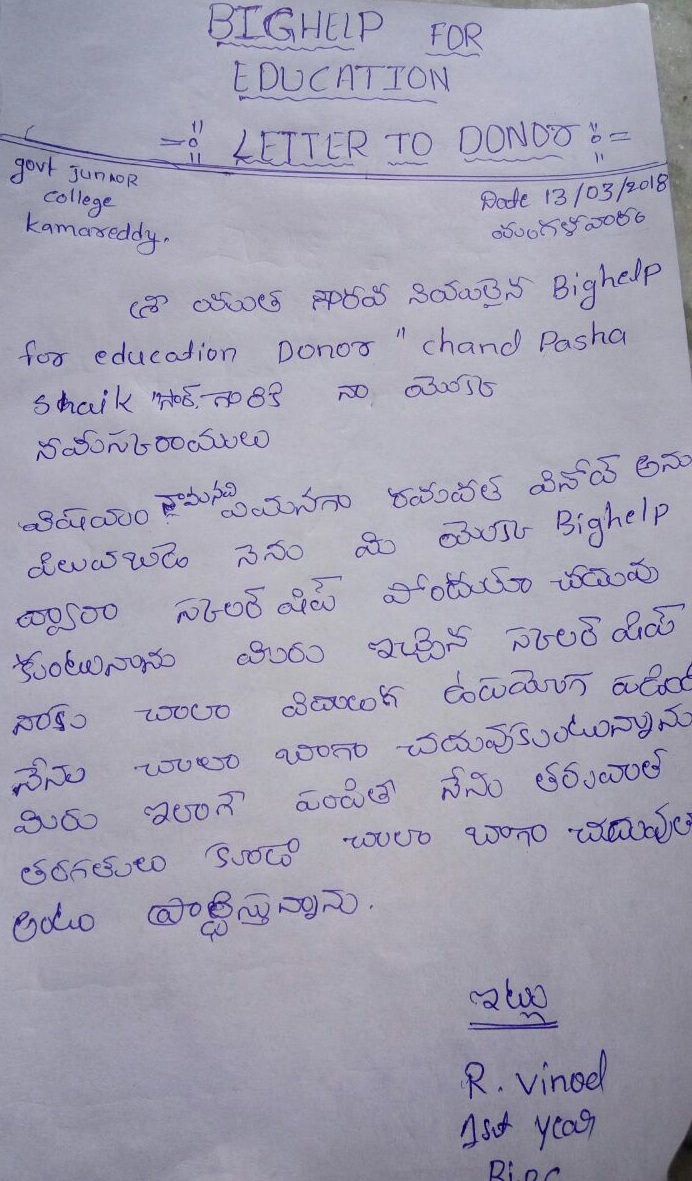 BIGHELP FOR
EDUCATION
LETTER TO DONOR
govt Junior
college
Kamareddy.
Date 13/03/2018
మంగళవారం
శ్రీ యుత గౌరవ నియులైన Bighelp
for education Donor " chand Pasha
Shaik సార్ గారికి నా యొక్క
నమస్కారాములు
విషయం ఏమనగా వినోద్ అను
పిలువబడె నెను మి యొక్క Bighelp
ద్వారా స్కలర్ షిప్ పోందుయా చదువు
కుంటునాను మిరు ఇచ్చిన స్కలర్ షిప్
నాకు చాలా ఉపయోగ పడింది
నేను చాలా బాగా చదువుకుంటున్నాను
మిరు ఇలాగే పంపితే నేను తరువాత
తరగతులు కూడా చాలా బాగా
అంటు ప్రార్థిస్తున్నాను.
ఇట్లు
R. vinod
1st year